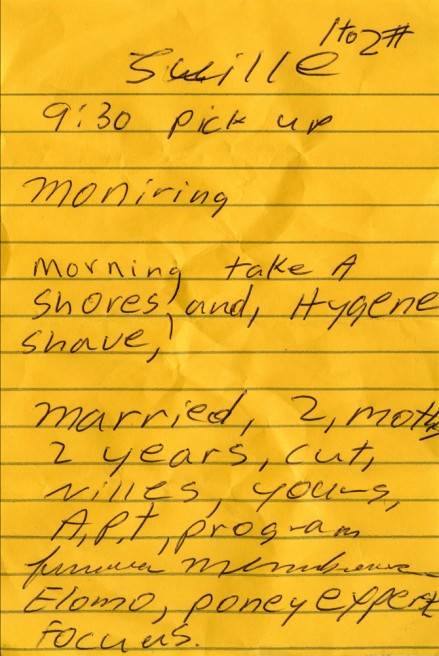 1 to 2 #
9:30 pick up
moniring
Morning take A
Shores, and, Hygene
Shave,
married, 2, moths
2 years, cut,
nilles, young,
A,P,t, program
Elomo, poney expert
Focuus.